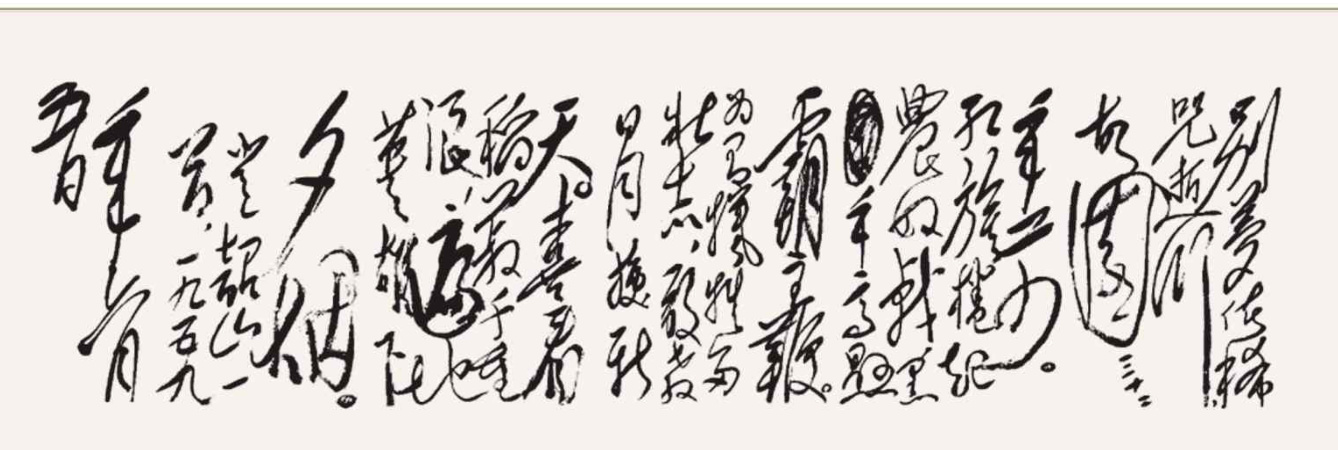 别梦依稀
咒逝川
故园三十二
年前。
红旗卷起
农奴戟黑
手高悬
霸主鞭。
为有牺牲多
壮志,敢教
日月换新
天。喜看
稻菽千重
浪,遍地
英雄下
夕烟。
登韶山一
首 一九五九
年六月
五日